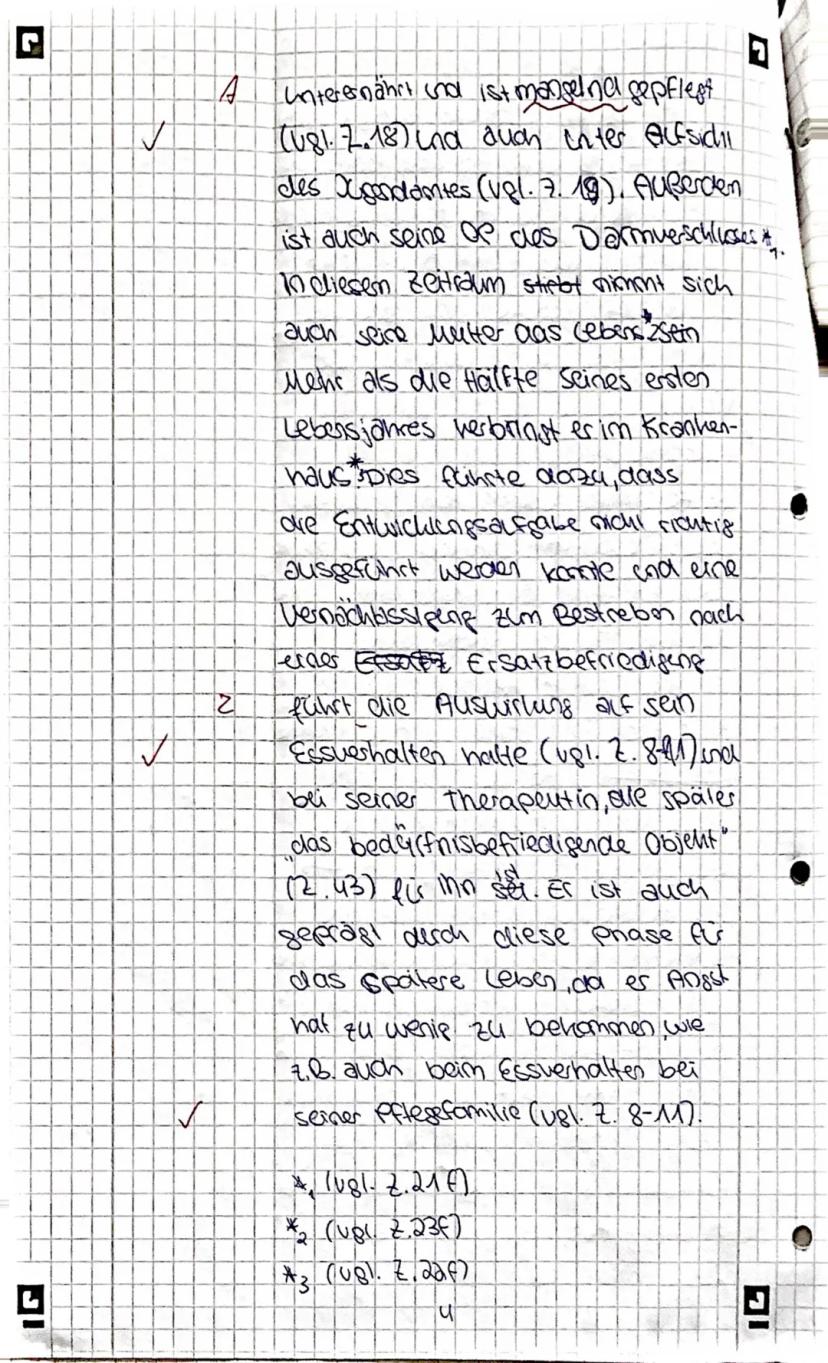 A unterernährt und ist mangelnd gepflegt
✓ (vgl. Z.18) und auch unter Aufsicht
des Jugendamtes (vgl. Z. 19). Außerdem
ist auch seine OP des Darmverschlusses *1.
In diesem Zeitraum stirbt nimmt sich
auch seine Mutter das Leben *2 sein
Mehr als die Hälfte seines ersten
Lebensjahres verbringt er im Kranken-
haus *3. Dies führte dazu, dass
die Entwicklungsaufgabe nicht richtig
ausgeführt werden konnte und eine
Vernachlässigung zum Bestreben nach
einer Ersatz Ersatzbefriedigung
Z führt die Auswirkung auf sein
✓ Essverhalten hatte (vgl. Z. 8-11) und
bei seiner Therapeutin, die später
"das bedürfnisbefriedigende Objekt"
(Z. 43) für ihn ist. Er ist auch
geprägt durch diese Phase für
das spätere Leben, da er Angst
hat zu wenig zu bekommen, wie
z.B. auch beim Essverhalten bei
✓ seiner Pflegefamilie (vgl. Z. 8-11).
*1 (vgl. Z.21f)
*2 (vgl. Z.23f)
*3 (vgl. Z.22f)
4